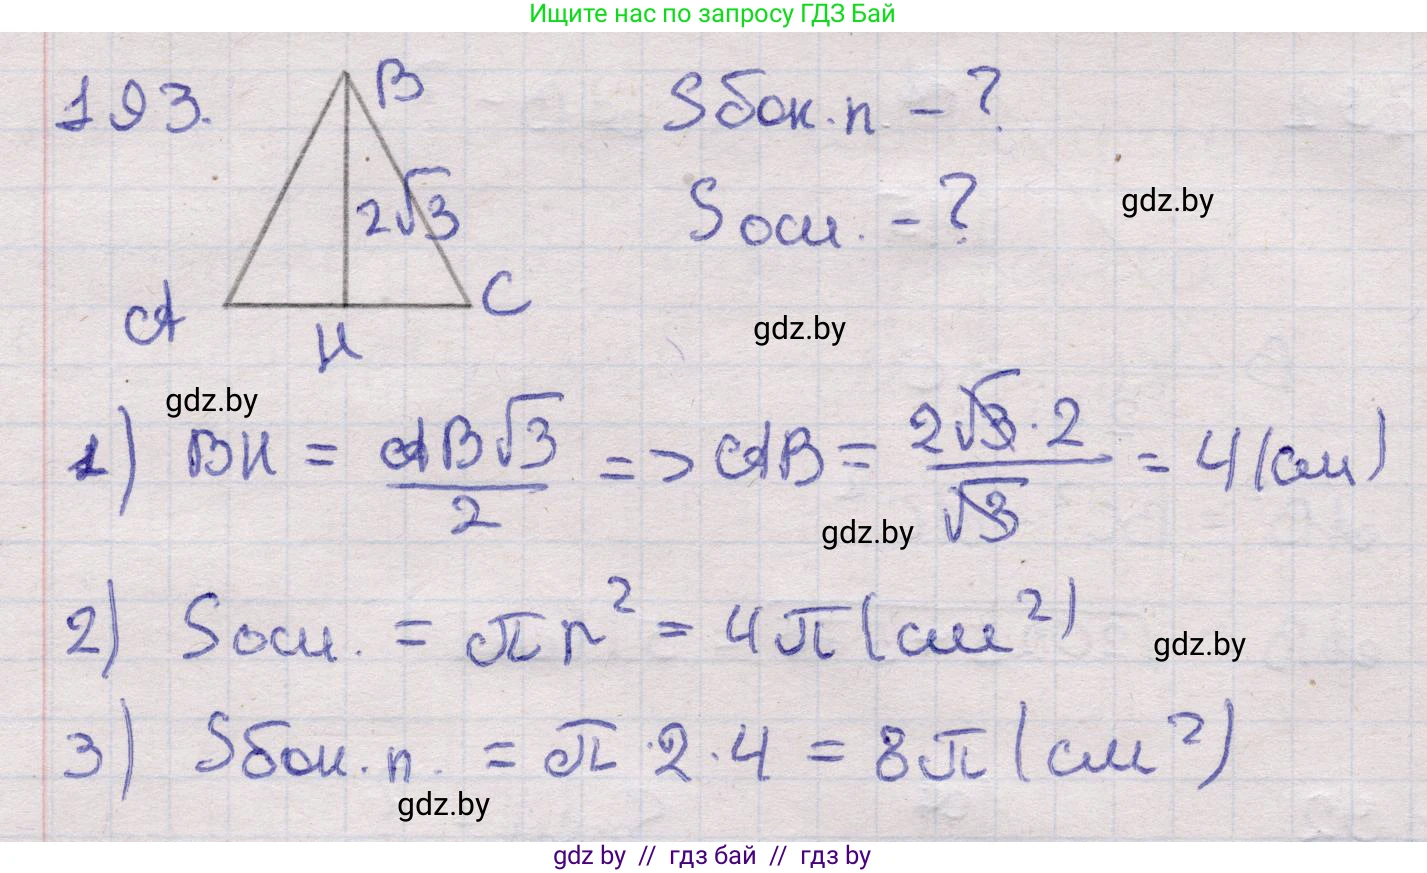 Ищите нас по запросу ГДЗ Бай
193.
B
Sбок.п. - ?
2√3
Sосн. - ?
gdz.by
A
C
H
gdz.by
gdz.by
1) BH = AB√3/2 => AB = 2√3·2/√3 = 4(см)
gdz.by
2) Sосн. = πr² = 4π(см²)
gdz.by
3) Sбок.п. = π·2·4 = 8π(см²)
gdz.by
gdz by // гдз бай // гдз by